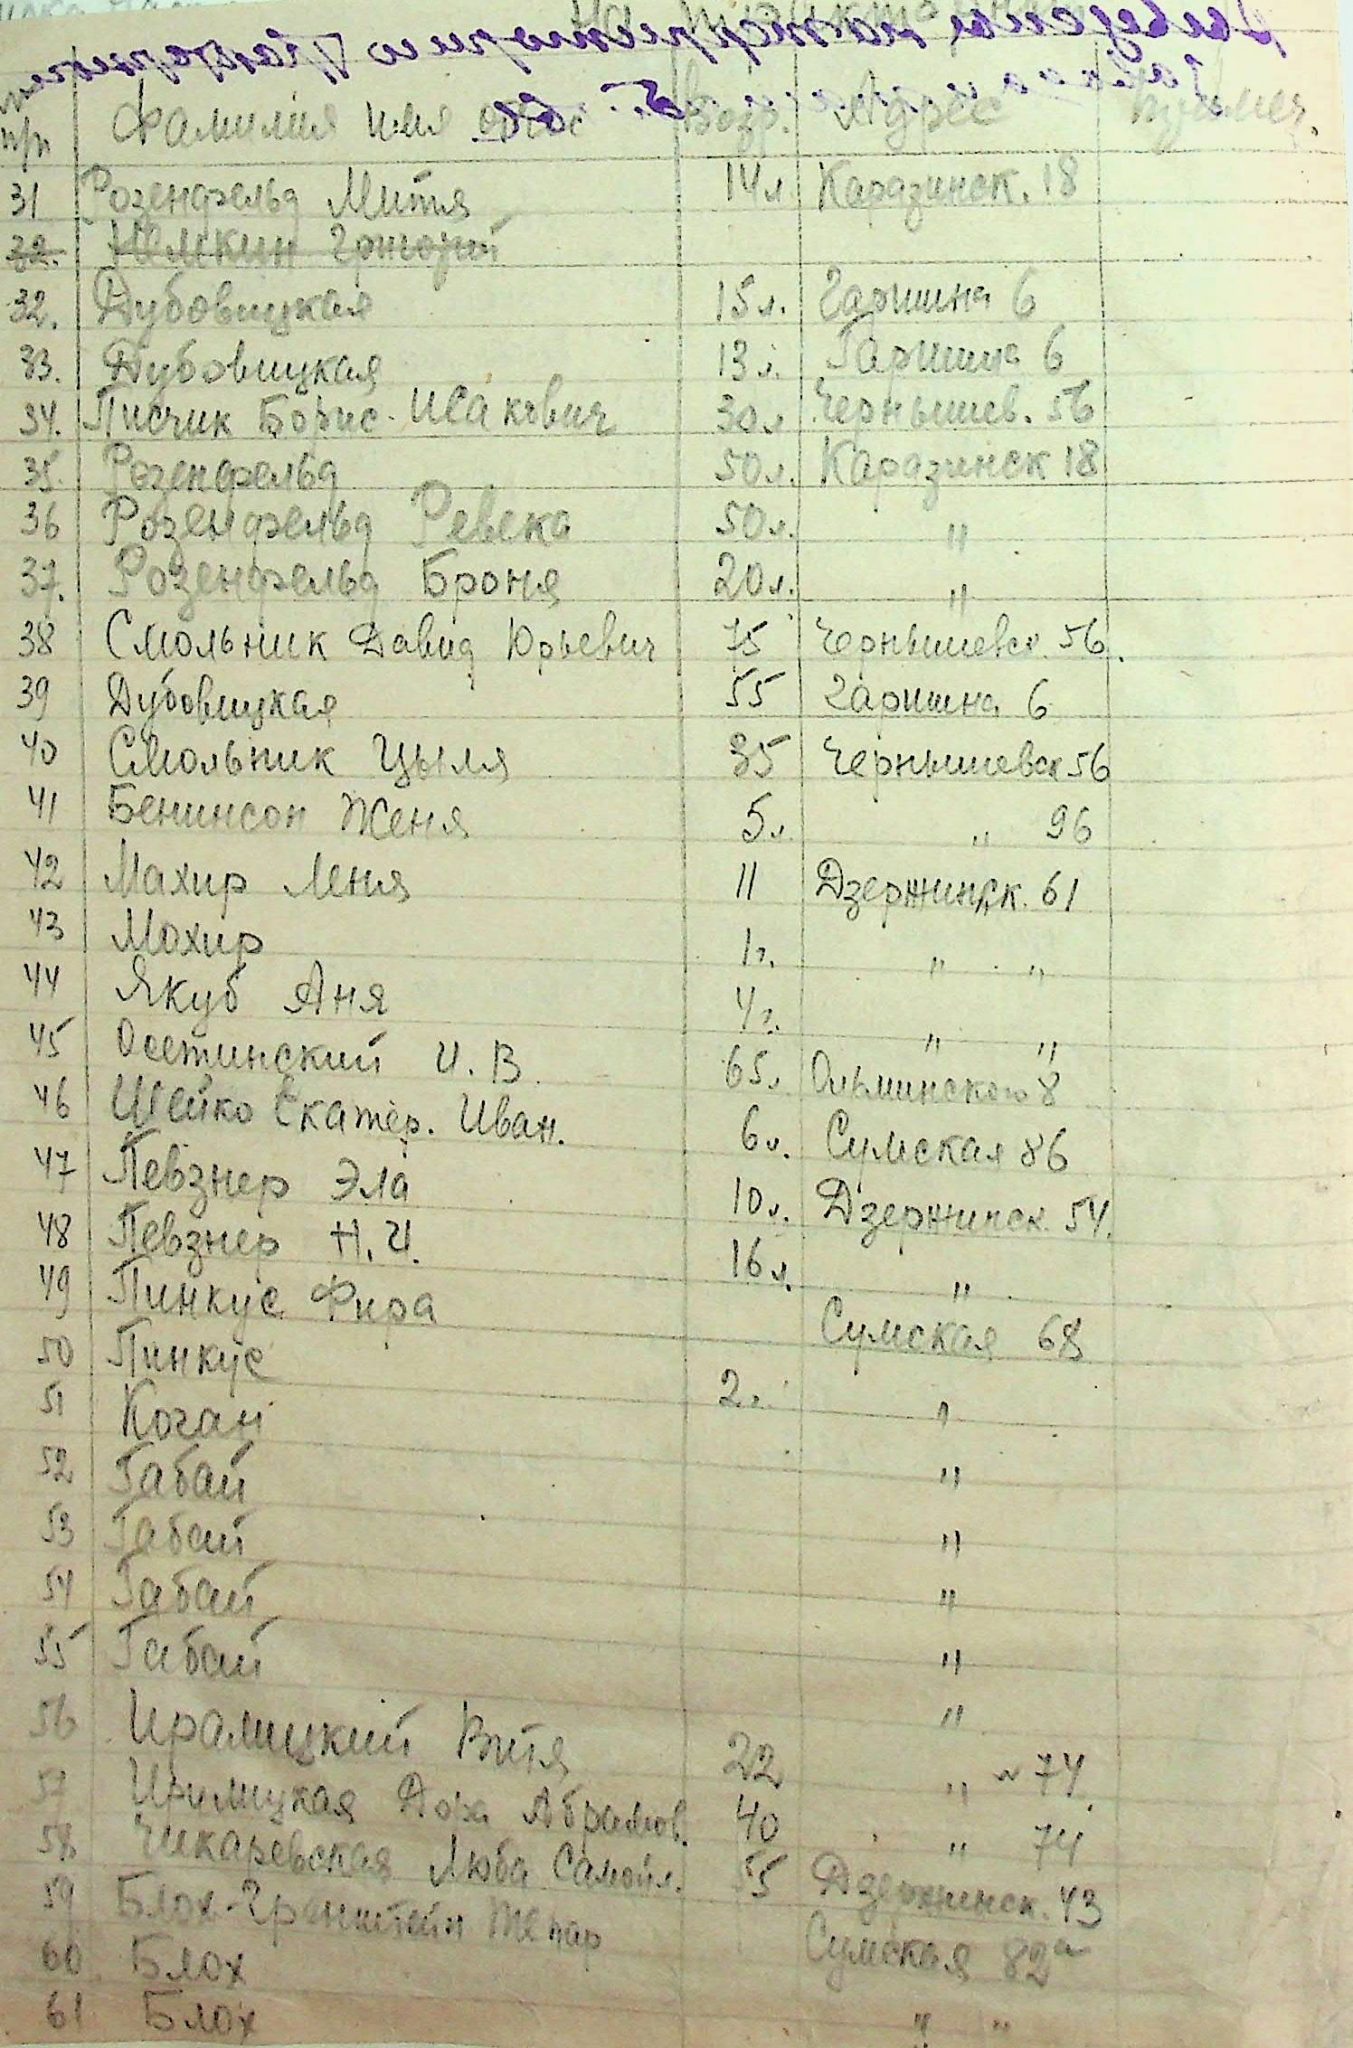 Выведены на территорию Тракторного
завода и
п/п Фамилия имя отч. Возр. Адрес Примеч.
31 Розенфельд Митя 14 л. Каразинск. 18
32. Немкин Григорий
32. Дубовицкая 15 л. Гаршина 6
33. Дубовицкая 13 л. Гаршина 6
34. Писчик Борис Исакович 30 л. Чернышев. 56
35. Розенфельд 50 л. Каразинск 18
36 Розенфельд Ревека 50 л. "
37. Розенфельд Броня 20 л. "
38 Смольник Давид Юрьевич 75 Чернышевск. 56.
39 Дубовицкая 55 Гаршина 6
40 Смольник Цыля 35 Чернышевск 56
41 Бенинсон Женя 5 л. " 96
42 Махир Леня 11 Дзержинск. 61
43 Мохир 1 г. " "
44 Якуб Аня 4 г. " "
45 Осетинский И. В. 65 л. Ольминского 8
46 Шейко Екатер. Иван. 6 л. Сумская 86
47 Певзнер Эла 10 л. Дзержинск. 54.
48 Певзнер Н. И. 16 л. "
49 Пинкус Фира Сумская 68
50 Пинкус 2 г. "
51 Коган "
52 Габай "
53 Габай "
54 Габай "
55 Габай "
56 Ирамицкий Витя 22 " 74.
57 Иримицкая Дора Абрамов. 40 " 74
58 Чикаревская Люба Самойл. 55 Дзержинск. 43
59 Блох-Гренштейн Сумская 82а
60 Блох
61 Блох " "